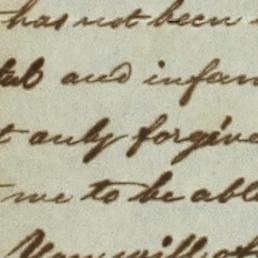 has not been
and infan
t only forgive
me to be able
You will